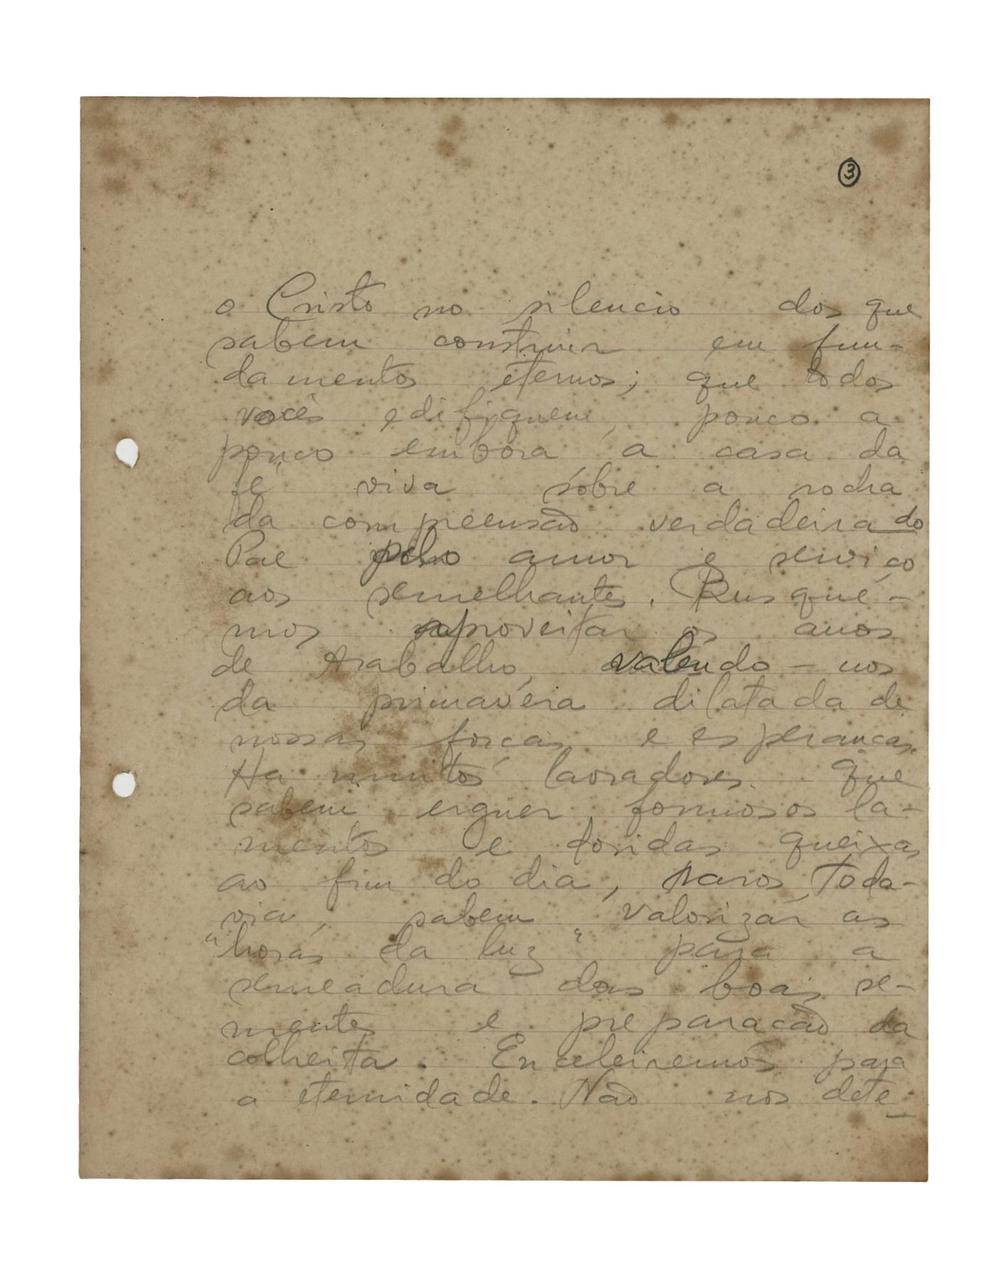 3
o Cristo no silencio dos que
sabem construir em fun-
damentos eternos; que todos
vocês edifiquem, pouco a
pouco embora a casa da
fé viva sobre a rocha
da compreensão verdadeira do
Pae pelo amor e serviço
aos semelhantes. Busqué-
mos aproveitar os anos
de trabalho, valendo-nos
da primavéra dilatada de
nossas forças e esperanças.
Ha muitos lavradores que
sabem erguer formosos la-
mentos e doridas queixas
ao fim do dia, raros toda-
via, sabem valorizar as
"horas da luz" para a
semeadura das boas se-
mentes e preparacão da
colheita. Enceleiremos para
a eternidade. Não nos dete-